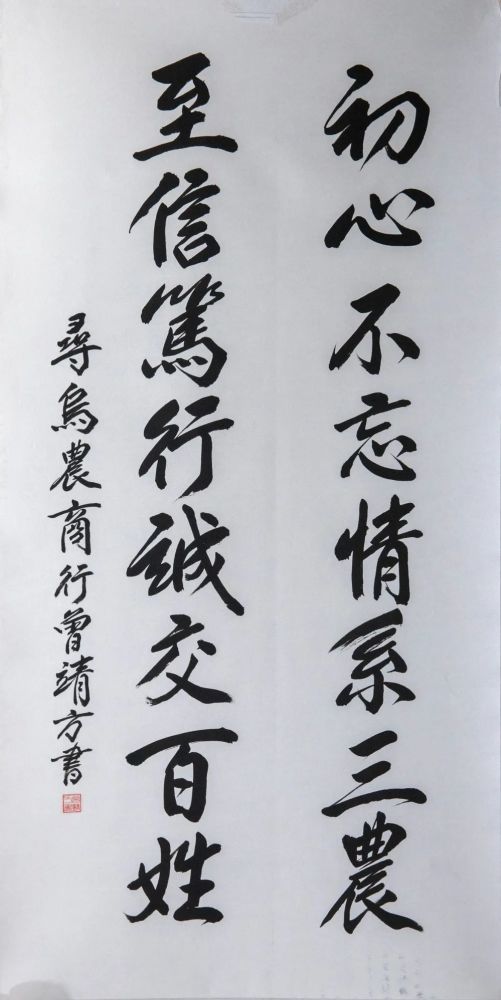 初心不忘情系三農
至信篤行誠交百姓
尋烏農商行曾靖方書